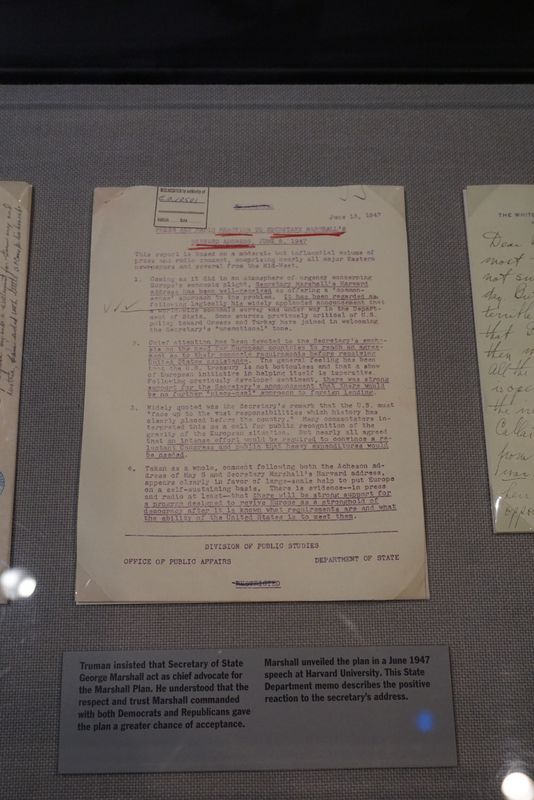 June 13, 1947
PRESS AND RADIO REACTION TO SECRETARY MARSHALL'S
HARVARD ADDRESS, JUNE 5, 1947
This report is based on a moderate but influential volume of
press and radio comment, comprising nearly all major Eastern
newspapers and several from the Mid-West.
1. Coming as it did in an atmosphere of urgency concerning
Europe's economic plight, Secretary Marshall's Harvard
address has been well-received as offering a "common-
sense" approach to the problem. It has been regarded as
following logically his widely applauded announcement that
a world-wide economic survey was under way in the Depart-
ment of State. Some sources previously critical of U.S.
policy toward Greece and Turkey have joined in welcoming
the Secretary's "unemotional" tone.
2. Chief attention has been devoted to the Secretary's emph-
asis on the need for European countries to reach an agree-
ment as to their economic requirements before receiving
United States assistance. The general feeling has been
that the U.S. treasury is not bottomless and that a show
of European initiative in helping itself is imperative.
Following previously developed sentiment, there was strong
support for the Secretary's announcement that there would
be no further "piece-meal" approach to foreign lending.
3. Widely quoted was the Secretary's remark that the U.S. must
"face up to the vast responsibilities which history has
clearly placed before the country." Many commentators in-
terpreted this as a call for public recognition of the
gravity of the European situation. But nearly all agreed
that an intense effort would be required to convince a re-
luctant Congress and public that heavy expenditures would
be needed.
4. Taken as a whole, comment following both the Acheson ad-
dress of May 8 and Secretary Marshall's Harvard address,
appears clearly in favor of large-scale help to put Europe
on a self-sustaining basis. There is evidence--in press
and radio at least--that there will be strong support for
a program designed to revive Europe as a stronghold of
democracy after it is known what requirements are and what
the ability of the United States is to meet them.
DIVISION OF PUBLIC STUDIES
OFFICE OF PUBLIC AFFAIRS DEPARTMENT OF STATE
RESTRICTED
THE WHITE
Dear
most
not su
day.
terrible
that
then
All the
Truman insisted that Secretary of State
George Marshall act as chief advocate for
the Marshall Plan. He understood that the
respect and trust Marshall commanded
with both Democrats and Republicans gave
the plan a greater chance of acceptance.
Marshall unveiled the plan in a June 1947
speech at Harvard University. This State
Department memo describes the positive
reaction to the secretary's address.